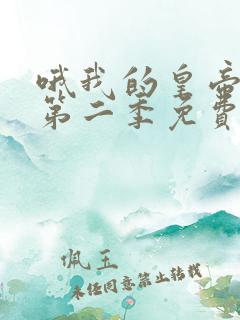 哦我的皇帝
第二季免费
佩玉
未经同意禁止转载